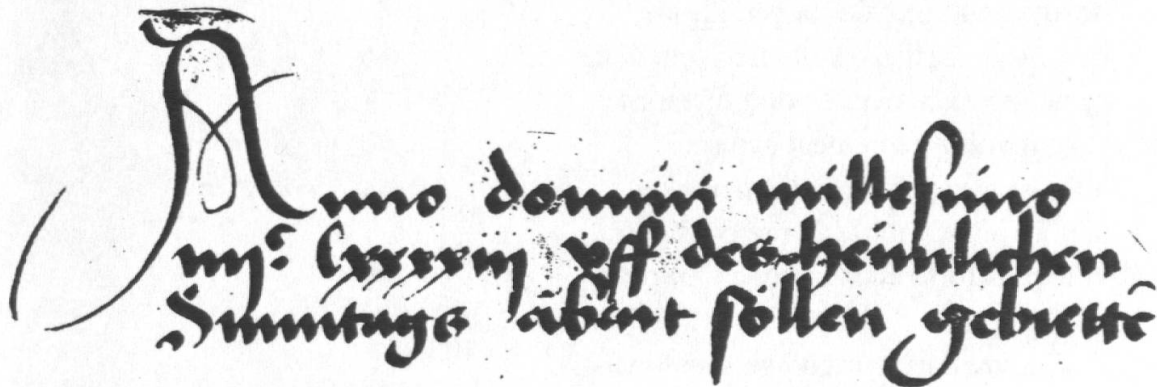 Anno domini millesimo
iiijc lxxxxiij vff des heimlichen
Sunntags abent söllen gebiettē